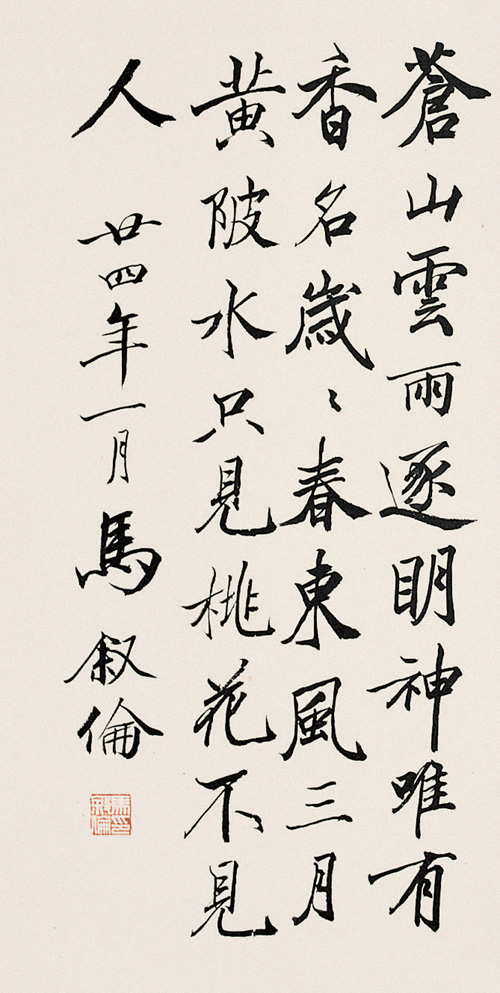 蒼山雲雨逐明神唯有
香名歲〻春東風三月
黃陂水只見桃花不見
人
廿四年一月馬叙倫
馬叙倫印